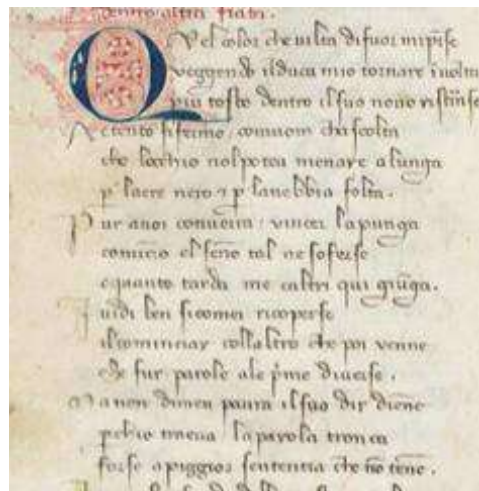 QVel color che vilta difuor mip̄ise
veggendo ilduca mio tornare inuolta
piu tosto dentro ilsuo nouo ristrinse
Attento si fermo comuom chascolta
che lochio nolpotea menare alunga
p laere nero 7 p lanebbia folta.
Pur anoi conuerra vincer lapunga
comicio el seno tal ne soferse
o quanto tarda me caltri qui giūga.
Iuidi ben sicomei ricoperse
ilcominciar collaltro che poi venne
che fur parole ale p̄me diuerse.
Ma non dimen paura ilsuo dir diene
pchio traeua laparola tronca
forse apiggior sententia che nō tene.